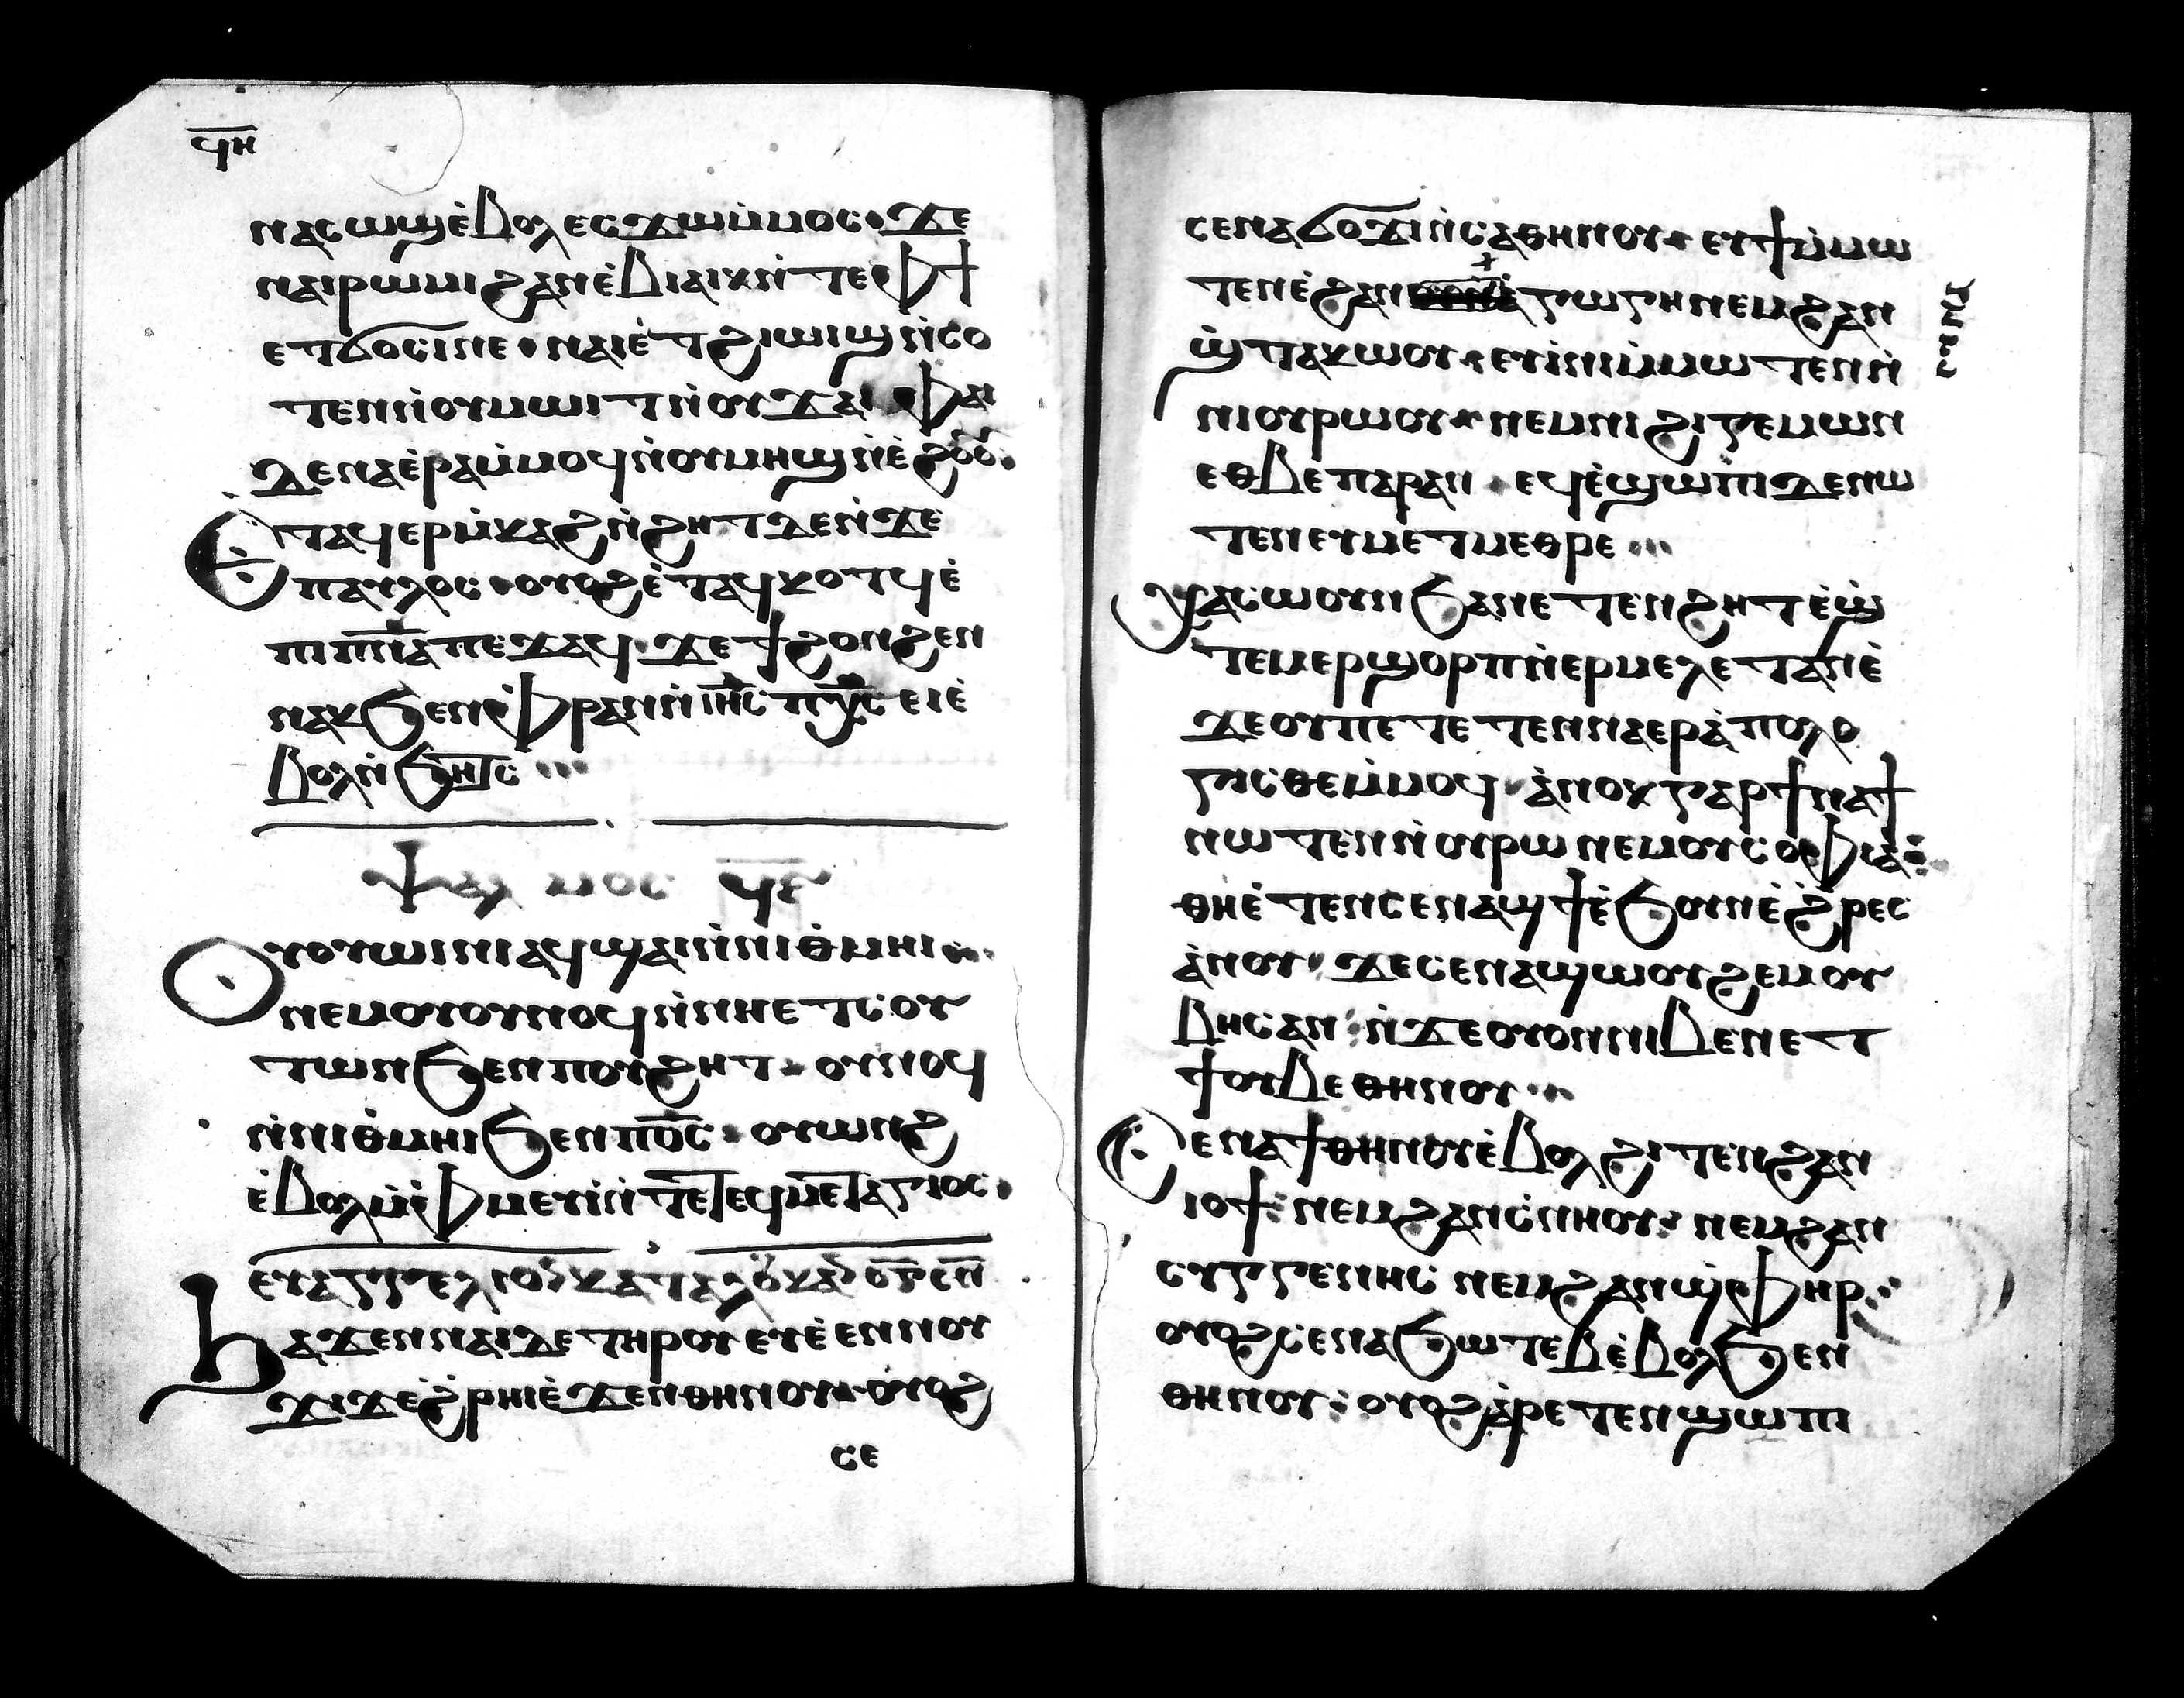 ϥⲏ
ⲛⲁⲥⲱϣⲉ̀ⲃⲟⲗⲉⲥϫⲱⲙ̀ⲙⲟⲥ ϫⲉ
ⲛⲁⲓⲣⲱⲙⲓϩⲁⲛⲉ̀ⲃⲓⲁⲓⲕⲛ̀ⲧⲉⲫϯ
ⲉⲧϭⲟⲥⲓⲛⲉ ⲛⲁⲓⲉ̀ⲧϩⲓⲱⲓϣⲛ̀ⲥⲟ
ⲧⲉⲛⲛ̀ⲟⲩⲙⲱⲓⲧⲛ̀ⲟⲩϫⲁⲓ ⲫⲁⲓ
ϫⲉⲛⲁⲉ̀ⲣⲁⲙ̀ⲙⲟϥⲛ̀ⲟⲩⲙⲏϣⲛ̀ⲉ̀ϩⲟⲟⲩ
Ⲉⲧⲁϥⲉⲣⲙ̀ⲕⲁϩⲛ̀ϩⲏⲧϫⲉⲛ̀ϫⲉ
ⲡⲁⲩⲗⲟⲥ ⲟⲩⲟϩⲉ̀ⲧⲁϥⲕⲟⲧϥⲉ̀
ⲡⲓⲡ̅ⲛ̅ⲁ̅ⲡⲉϫⲁϥ ϫⲉϯϩⲟⲛϩⲉⲛ
ⲛⲁⲕϧⲉⲛⲫⲣⲁⲛⲛ̀ⲓⲏ̅ⲥ̅ⲡⲭ̅ⲥ̅ⲉⲓⲉ̀
ⲃⲟⲗⲛ̀ϧⲏⲧⲥ
ⲯⲁⲗⲙⲟⲥ ϥ̅ⲋ̅
Ⲟⲩⲟⲩⲱⲓⲛⲓⲁϥϣⲁⲓⲛ̀ⲛⲓⲑ̀ⲙⲏⲓ
ⲛⲉⲙⲟⲩⲟⲩⲛⲟϥⲛ̀ⲛⲏⲉⲧⲥⲟⲩ
ⲧⲱⲛϧⲉⲛⲡⲟⲩϩⲏⲧ ⲟⲩⲛⲟϥ
ⲛ̀ⲛⲓⲑ̀ⲙⲏⲓϧⲉⲛⲡⲟ̅ⲥ̅ ⲟⲩⲱⲛϩ
ⲉ̀ⲃⲟⲗⲙ̀ⲫ̀ⲙⲉⲩⲓ̀ⲛ̀ⲧⲉⲡⲉϥⲙⲉⲧⲁⲅⲓⲟⲥ
ⲉⲩⲁⲅⲅⲉⲗⲓⲟⲛⲕⲁⲧⲁⲗⲟⲩⲕⲁⲛ
Ϧⲁϫⲉⲛⲛⲁⲓⲇⲉⲧⲏⲣⲟⲩⲉⲩⲉ̀ⲉⲛⲛⲟⲩ
ϫⲓϫⲉ̀ϩⲣⲏⲓⲉ̀ϫⲉⲛⲑⲏⲛⲟⲩ ⲟⲩⲟϩ
ⲥⲉ
ⲥⲉⲛⲁϭⲟϫⲓⲛ̀ⲥⲁⲑⲏⲛⲟⲩ ⲉⲩϯⲙ̀ⲙⲱ
ⲧⲉⲛⲉ̀ϩⲁⲛⲥⲩⲛⲁⲅⲱⲅⲏⲛⲉⲙϩⲁⲛ
ϣ̀ⲧⲁⲕⲱⲟⲩ ⲉⲩⲓ̀ⲛⲓⲙ̀ⲙⲱⲧⲉⲛⲛ̀
ⲛⲓⲟⲩⲣⲱⲟⲩ ⲛⲉⲙⲛⲓϩⲓⲅⲉⲙⲱⲛ
ⲉⲑⲃⲉⲡⲁⲣⲁⲛ ⲉϥⲉ̀ϣⲱⲡⲓϫⲉⲛⲱ
ⲧⲉⲛⲉⲩⲙⲉⲧⲙⲉⲑⲣⲉ
Ⲭⲁⲥⲱⲟⲩⲛϧⲁⲛⲉⲧⲉⲛϩⲏⲧⲉ̀ϣ̀
ⲧⲉⲙⲉⲣϣⲟⲣⲡⲛ̀ⲉⲣⲙⲉⲗⲉⲧⲁⲛⲉ̀
ϫⲉⲟⲩⲡⲉⲧⲉⲧⲉⲛⲛⲁⲉⲣⲁ̀ⲡⲟⲗⲟ
ⲅⲓⲥⲑⲉⲙ̀ⲙⲟϥ ⲁ̀ⲛⲟⲕⲅⲁⲣϯⲛⲁϯ
ⲛⲱⲧⲉⲛⲛ̀ⲟⲩⲣⲱⲛⲉⲙⲟⲩⲥⲟⲫⲓⲁ
ⲑⲏⲉ̀ⲧⲉⲛⲥⲉⲛⲁϣϯⲉ̀ϧⲟⲩⲛⲉ̀ϩ̀ⲣⲉⲥ
ⲁ̀ⲛⲟⲩ ϫⲉⲥⲉⲛⲁϣϣⲟⲩϩⲉⲙⲟⲩ
ⲃⲏⲥⲁⲛ ⲛ̀ϫⲉⲟⲩⲟⲛⲛⲓⲃⲉⲛⲉⲧ
ϯⲟⲩⲃⲉⲑⲏⲛⲟⲩ
Ⲥⲉⲛⲁϯⲑⲏⲛⲟⲩⲉ̀ⲃⲟⲗϩⲓⲧⲉⲛϩⲁⲛ
ⲓⲟϯ ⲛⲉⲙϩⲁⲛⲥ̀ⲛⲏⲟⲩ ⲛⲉⲙϩⲁⲛ
ⲥⲩⲅⲅⲉⲛⲏⲥ ⲛⲉⲙϩⲁⲛϣ̀ⲫⲏⲣ
ⲟⲩⲟϩⲥⲉⲛⲁϧⲱⲧⲉⲃⲉ̀ⲃⲟⲗϧⲉⲛ
ⲑⲏⲛⲟⲩ ⲟⲩⲟϩⲁ̀ⲣⲉⲧⲉⲛϣⲱⲡⲓ